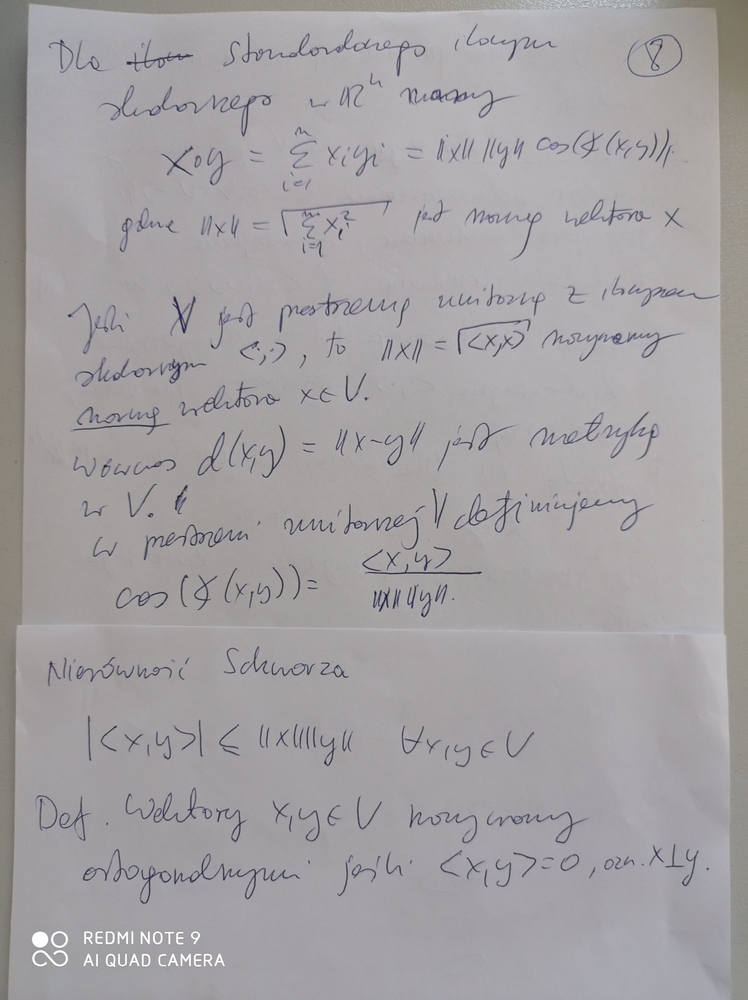 Dla standardowego iloczynu
8
skalarnego w ℝⁿ mamy
x∘y = ∑_{i=1}^{n} xᵢyᵢ = ‖x‖ ‖y‖ cos(∡(x,y)),
gdzie ‖x‖ = √(∑_{i=1}^{n} xᵢ²) jest normą wektora x
Jeśli V jest przestrzenią unitarną z iloczynem
skalarnym <·,·>, to ‖x‖ = √<x,x> nazywamy
normą wektora x∈V.
Wówczas d(x,y) = ‖x-y‖ jest metryką
w V.
W przestrzeni unitarnej V definiujemy
cos(∡(x,y)) = <x,y> / ‖x‖ ‖y‖.
Nierówność Schwarza
|<x,y>| ≤ ‖x‖‖y‖ ∀x,y∈V
Def. Wektory x,y∈V nazywamy
ortogonalnymi jeśli <x,y>=0, ozn. x⊥y.
REDMI NOTE 9
AI QUAD CAMERA